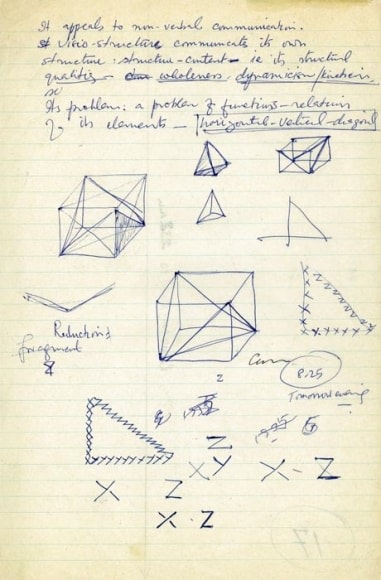 It appeals to non-verbal communication.
A visio-structure communicate its own
structure: structure-content - ie its structural
qualities - wholeness, dynamicism/kineticism,
Its problem: a problem of functions-relations
of its elements - horizontal-vertical-diagonal
Reduction &
fragment
Z
P.25
Tomorrow evening
Z
XY X - Z
X Z
X - Z
17